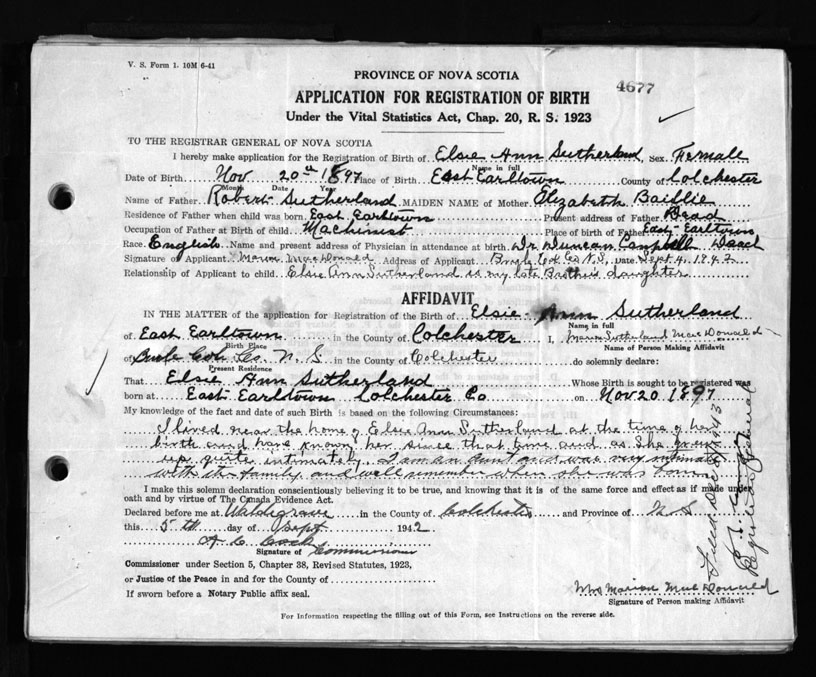 V. S. Form 1. 10M 6-41
4677
PROVINCE OF NOVA SCOTIA
APPLICATION FOR REGISTRATION OF BIRTH
Under the Vital Statistics Act, Chap. 20, R. S. 1923
TO THE REGISTRAR GENERAL OF NOVA SCOTIA
I hereby make application for the Registration of Birth of Elsie Ann Sutherland Sex Femall
Name in full
Date of Birth Nov. 20th 1897 Place of Birth East Earltown County of Colchester
Month Date Year
Name of Father Robert Sutherland MAIDEN NAME of Mother Elizabeth Baillie
Residence of Father when child was born East Earltown Present address of Father Dead
Occupation of Father at Birth of child Machinist Place of birth of Father East Earltown
Race English Name and present address of Physician in attendance at birth Dr Duncan Campbell Dead
Signature of Applicant Marion MacDonald Address of Applicant Col Co N.S. Date Sept 4 1942
Relationship of Applicant to child Elsie Ann Sutherland is my late Brothers daughter
AFFIDAVIT
IN THE MATTER of the application for Registration of the Birth of Elsie Ann Sutherland
Name in full
of East Earltown in the County of Colchester I, Marion Sutherland MacDonald
Birth Place Name of Person Making Affidavit
of Col. Co. N. S in the County of Colchester do solemnly declare:
Present Residence
That Elsie Ann Sutherland Whose Birth is sought to be registered was
born at East Earltown Colchester Co on Nov 20 1897
My knowledge of the fact and date of such Birth is based on the following Circumstances:
I lived near the home of Elsie Ann Sutherland at the time of her
birth and have known her since that time and as she grew
up quite intimately. I am an Aunt and was very intimate
with the family and well remember when she was born
I make this solemn declaration conscientiously believing it to be true, and knowing that it is of the same force and effect as if made under
oath and by virtue of The Canada Evidence Act.
Declared before me at Waldegrave in the County of Colchester and Province of N.S
this 5th day of Sept 1942
A C
Signature of Commissioner
Commissioner under Section 5, Chapter 38, Revised Statutes, 1923,
or Justice of the Peace in and for the County of
If sworn before a Notary Public affix seal.
Mrs Marion MacDonald
Signature of Person making Affidavit
For Information respecting the filling out of this Form, see Instructions on the reverse side.
Filed Dec 1943
Registrar General